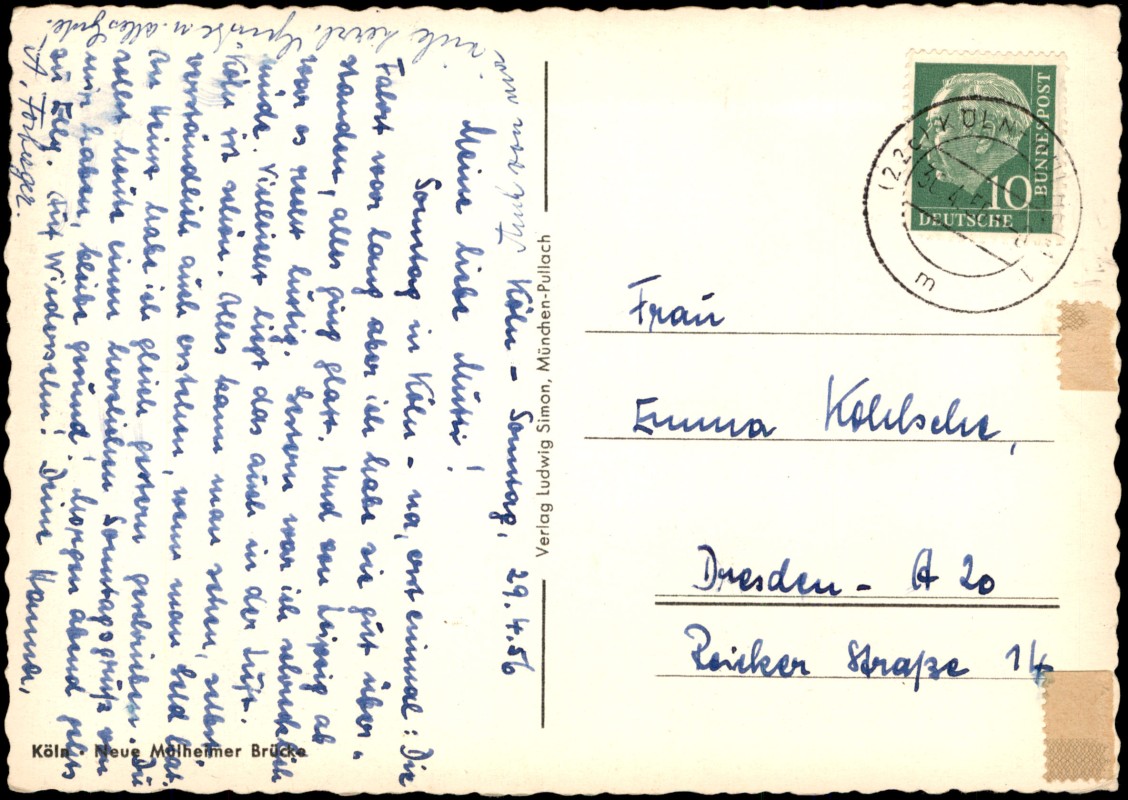 Köln - Sonntag, 29.4.56
Meine liebe Mutti!
Sonntag in Köln - na, erst einmal: Die
Fahrt war lang aber ich habe sie gut über-
standen, alles ging glatt. Und von Leipzig ab
war es recht lustig. Gestern war ich schrecklich
müde. Vielleicht liegt das auch in der Luft.
Köln ist schön. Alles kann man sehen, selbst-
verständlich auch erstehen, wenn man Geld hat.
An Heinz habe ich gleich gestern geschrieben. Du
sollst heute einen herzlichen Sonntagsgruß von
mir haben, bleib gesund! Morgen abend gehts
zu Elly. Auf Wiedersehn! Deine Hanna,
viele herzl. Grüße u. alles Gute.
A.
Köln · Neue Mülheimer Brücke
Verlag Ludwig Simon, München-Pullach
10
DEUTSCHE
BUNDESPOST
KÖLN
m
Frau
Emma Kohlsche,
Dresden - A 20
Reicker Straße 14